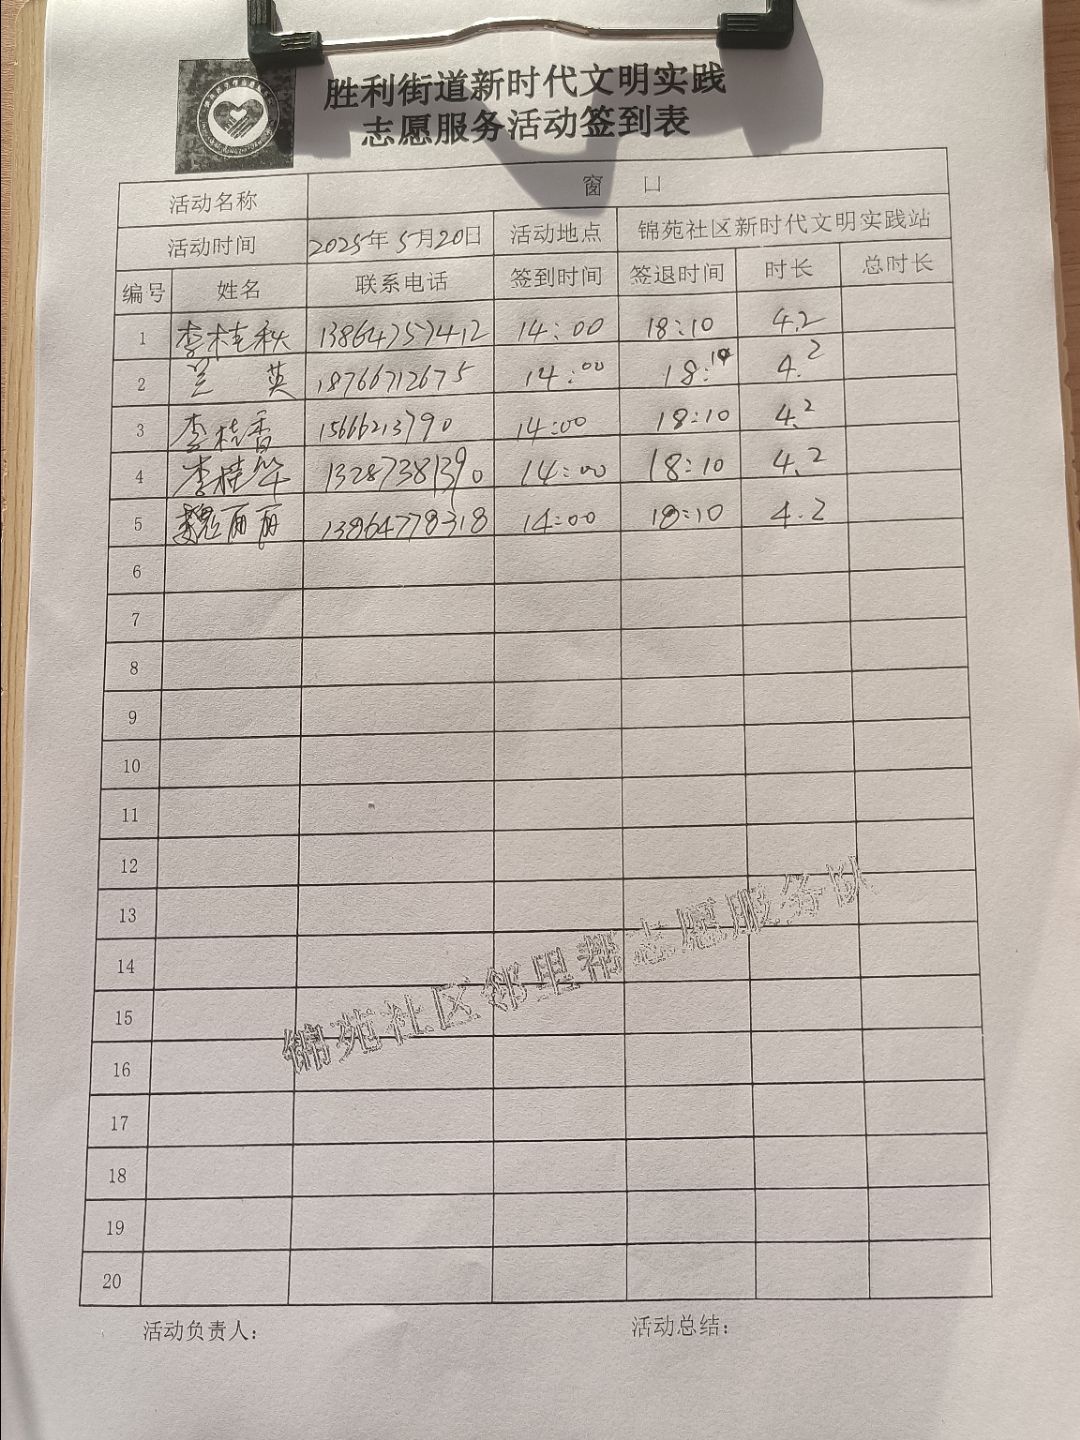 胜利街道新时代文明实践
志愿服务活动签到表
活动名称 窗 口
活动时间 2025年5月20日 活动地点 锦苑社区新时代文明实践站
编号 姓名 联系电话 签到时间 签退时间 时长 总时长
1 李桂秋 13864757412 14:00 18:10 4.2
2 兰 英 18766712675 14:00 18:10 4.2
3 李桂香 15666213790 14:00 18:10 4.2
4 李桂华 13287381390 14:00 18:10 4.2
5 魏丽丽 13864778318 14:00 18:10 4.2
6
7
8
9
10
11
12
13
14
15
16
17
18
19
20
锦苑社区邻里帮志愿服务队
活动负责人: 活动总结: